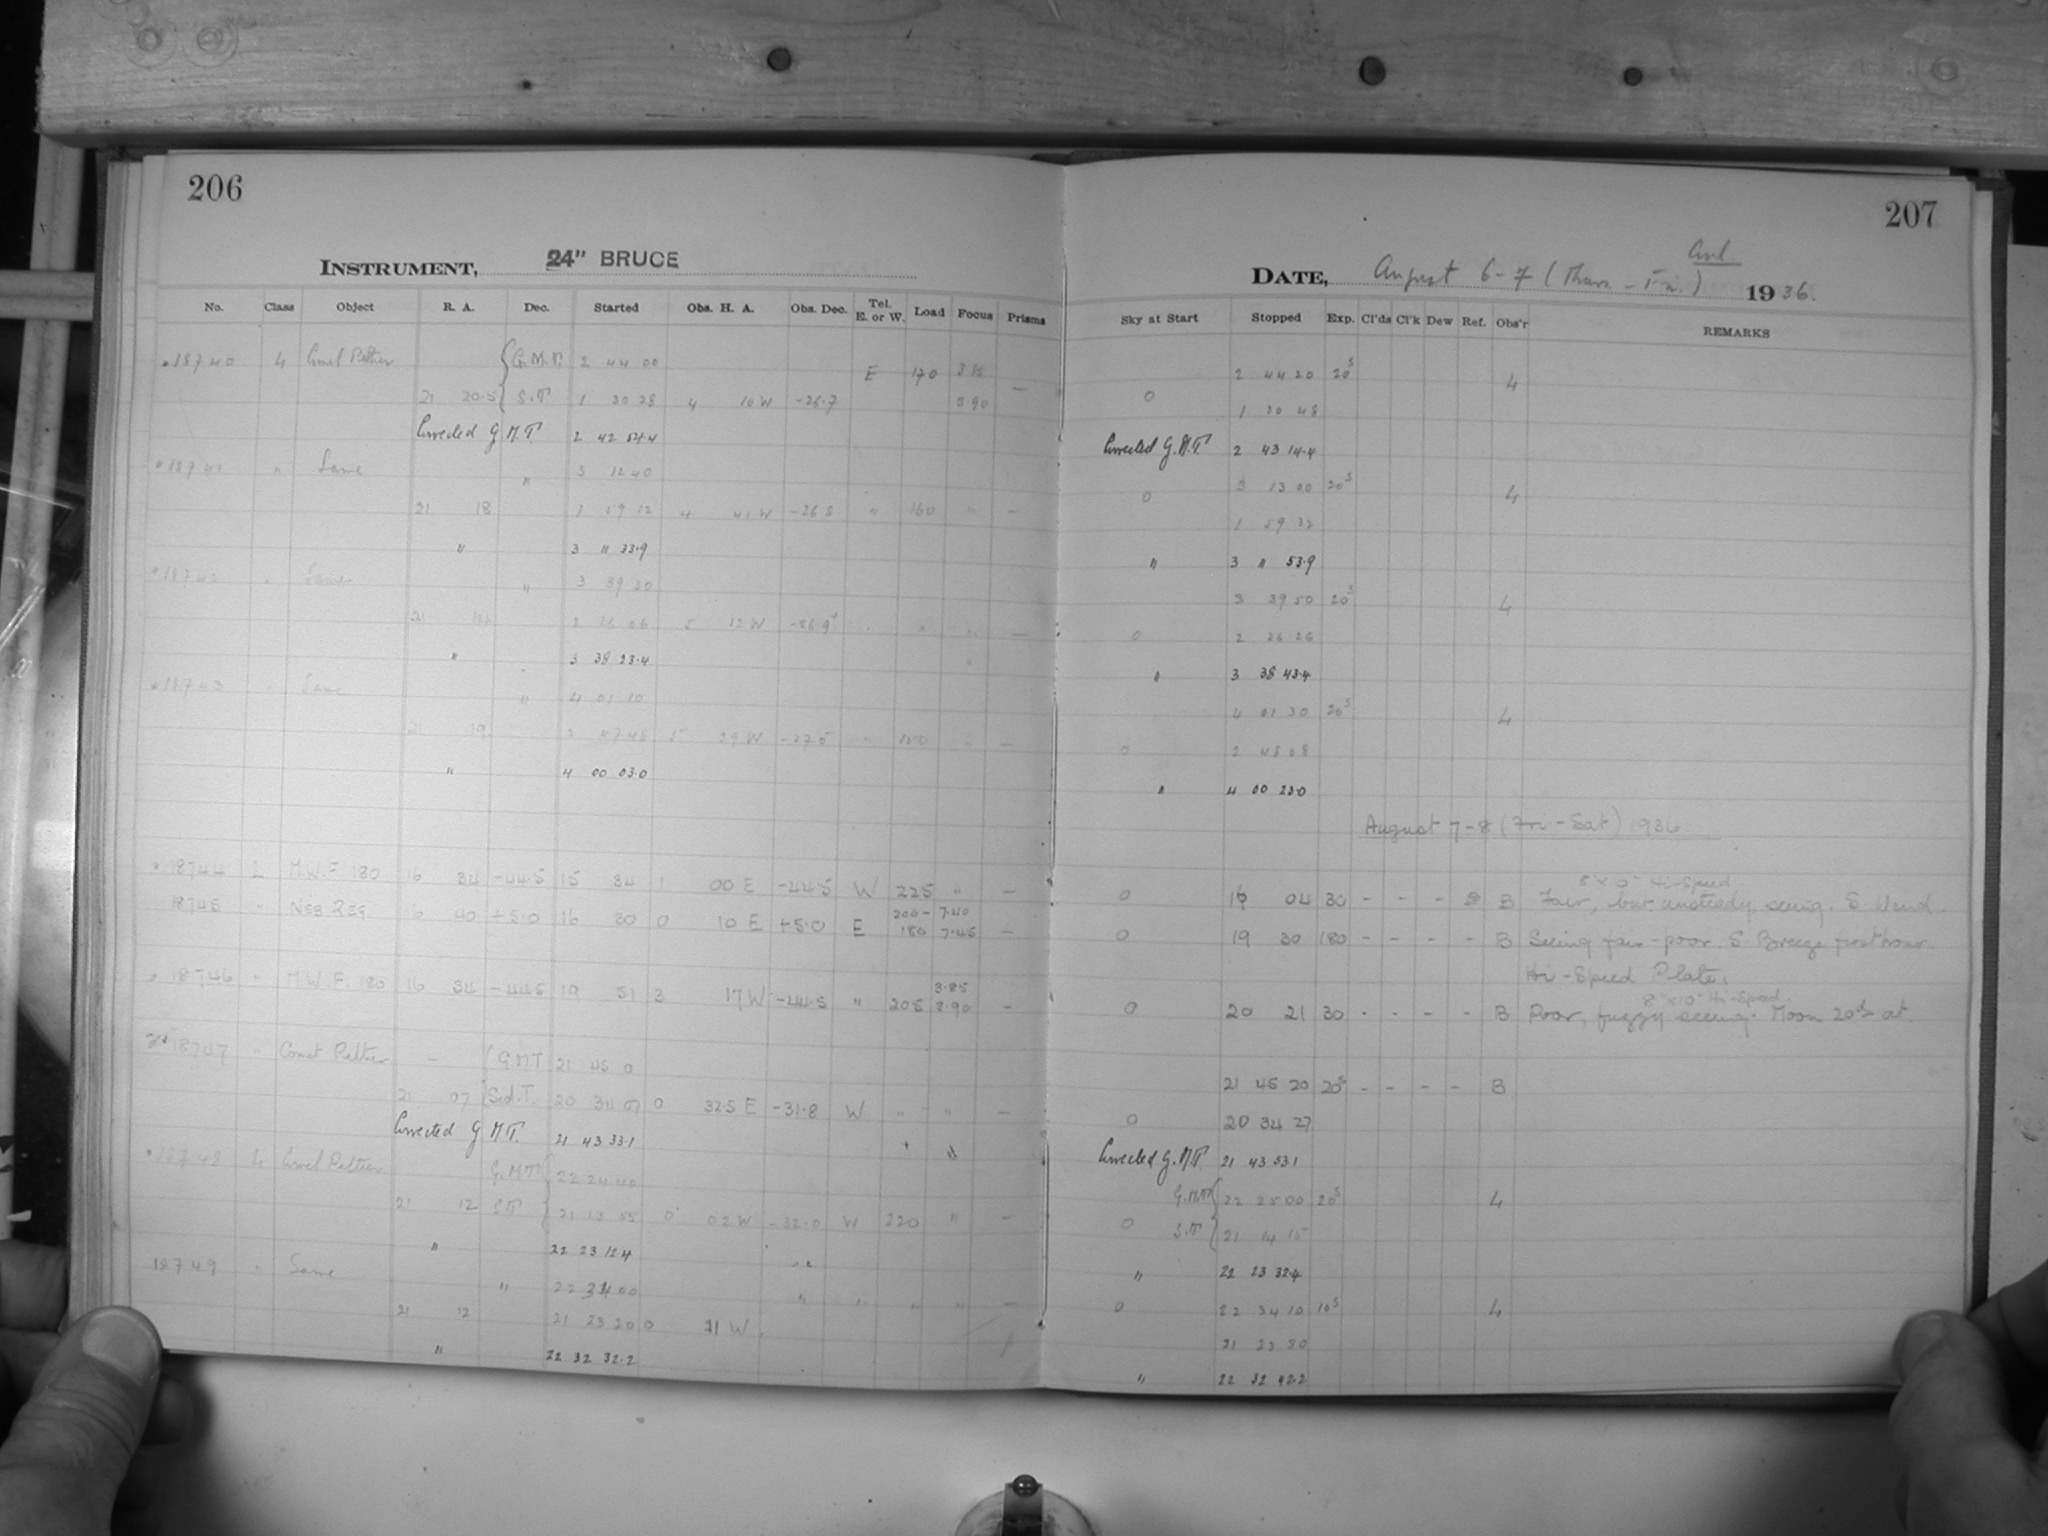 206
INSTRUMENT, 24" BRUCE
No. Class Object R. A. Dec. Started Obs. H. A. Obs. Dec. Tel. E. or W. Load Focus Prisms
18740 4 Comet Peltier { G.M.T. 2 44 00 E 170 3.85
21 20.5 S.T. 1 30 28 4 10 W -26.7 3.90 —
Corrected G.M.T. 2 42 54.4
18741 " Same " 3 12 40
21 18 1 59 12 4 41 W -26.8 " 160 " —
" 3 11 33.9
18742 " Same " 3 39 30
21 2 26 06 5 12 W -26.9 " " " —
" 3 38 23.4
18743 " Same " 4 01 10
21 19 2 47 48 5 29 W " 150 " —
" 4 00 03.0
18744 L M.W.F. 180 16 34 -44.5 15 34 1 00 E -44.5 W 225 " —
18745 " 16 40 +5.0 16 30 0 10 E +5.0 E 200-180 7.40 7.45 —
18746 " M.W.F. 180 16 34 -44.5 19 51 3 17 W -44.5 " 205 3.85 3.90 —
18747 " Comet Peltier — { G.M.T. 21 45 0
21 07 Sid. T. 20 34 07 0 32.5 E -31.8 W " " —
Corrected G.M.T. 21 43 33.1 " "
18748 4 Comet Peltier G.M.T. { 22 24 40
21 12 S.T. 21 13 55 0 02 W -32.0 W 220 " —
" 22 23 12.4
18749 " Same " 22 34 00 " " " " —
21 12 21 23 20 0 11 W
" 22 32 32.2
207
DATE, August 6-7 (Thurs - Fri.) 1936.
Sky at Start Stopped Exp. Cl'ds Cl'k Dew Ref. Obs'r REMARKS
2 44 20 20s 4
0 1 30 48
Corrected G.M.T. 2 43 14.4
0 3 13 00 20s 4
1 59 32
" 3 11 53.9
3 39 50 20s 4
0 2 26 26
" 3 38 43.4
4 01 30 20s 4
0 2 48 08
" 4 00 23.0
August 7-8 (Fri - Sat) 1936
8" x 10" Hi-Speed
0 16 04 30 - - - B Fair, but unsteady, seeing. S. Wind.
0 19 30 180 - - - - B Seeing fair-poor. S. Breeze first hour.
Hi-Speed Plate.
8" x 10" Hi-Speed.
0 20 21 30 - - - - B Poor, fuzzy seeing. Moon
21 45 20 20s - - - - B
0 20 34 27
Corrected G.M.T. 21 43 53.1
G.M.T. { 22 25 00 20s 4
0 S.T. 21 14 15
" 22 23 32.4
0 22 34 10 10s 4
21 23 30
" 22 32 42.2